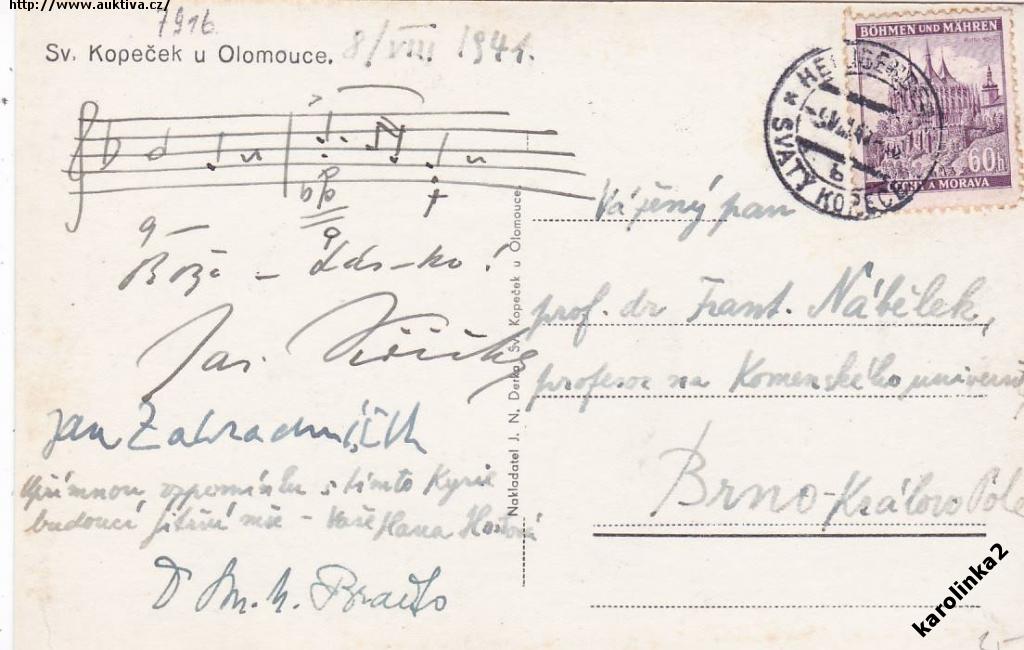 http://www.auktiva.cz/
7916
Sv. Kopeček u Olomouce.
8/VIII. 1941.
Bože - lás-ko!
Jan Zahradníček
Upřímnou vzpomínku s tímto Kyrie
budoucí jitřní mše - Vaše Hana
Braito
Nakladatel J. N. Derka, Sv. Kopeček u Olomouce.
BÖHMEN UND MÄHREN
60h
ČECHY A MORAVA
SVATÝ KOPEČEK
b
Vážený pan
prof. dr Frant. Nábělek,
profesor na Komenského universitě
Brno-Královo Pole
karolinka2